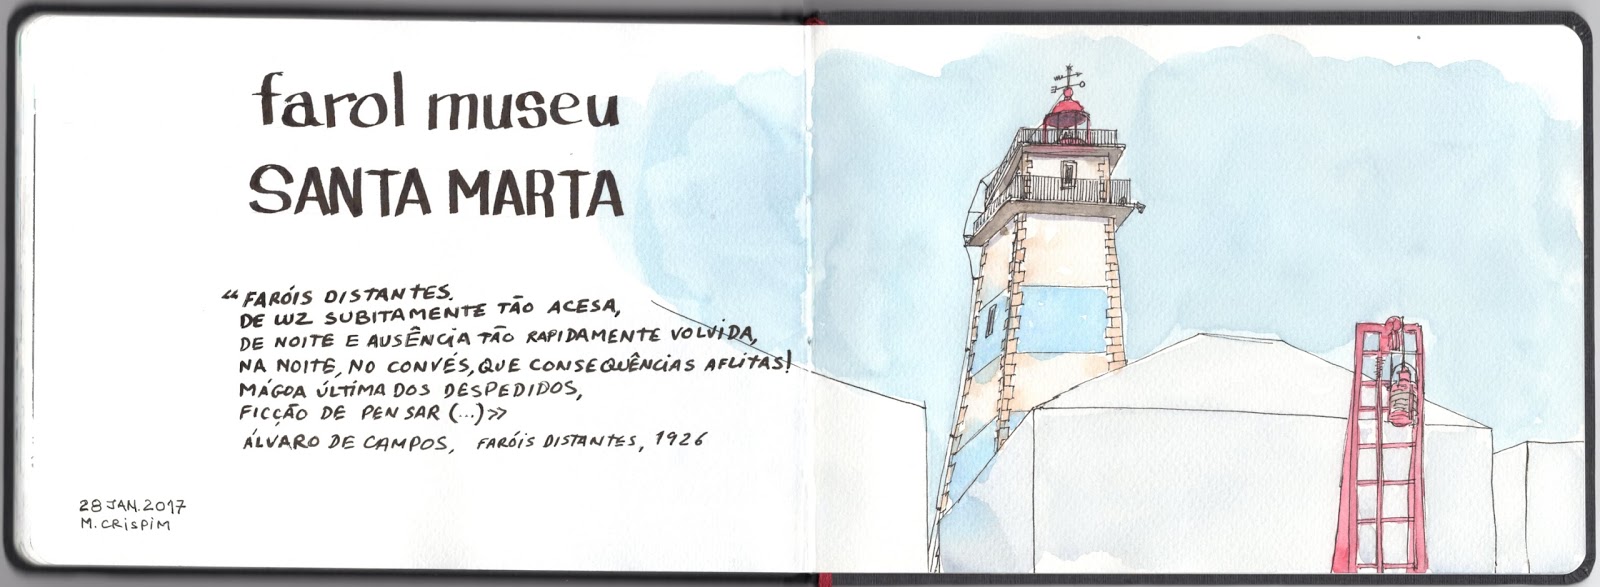 farol museu
SANTA MARTA
“FARÓIS DISTANTES.
DE LUZ SUBITAMENTE TÃO ACESA,
DE NOITE E AUSÊNCIA TÃO RAPIDAMENTE VOLVIDA,
NA NOITE, NO CONVÉS, QUE CONSEQUÊNCIAS AFLITAS!
MÁGOA ÚLTIMA DOS DESPEDIDOS,
FICÇÃO DE PENSAR (...)»
ÁLVARO DE CAMPOS, FARÓIS DISTANTES, 1926
28 JAN. 2017
M. CRISPIM